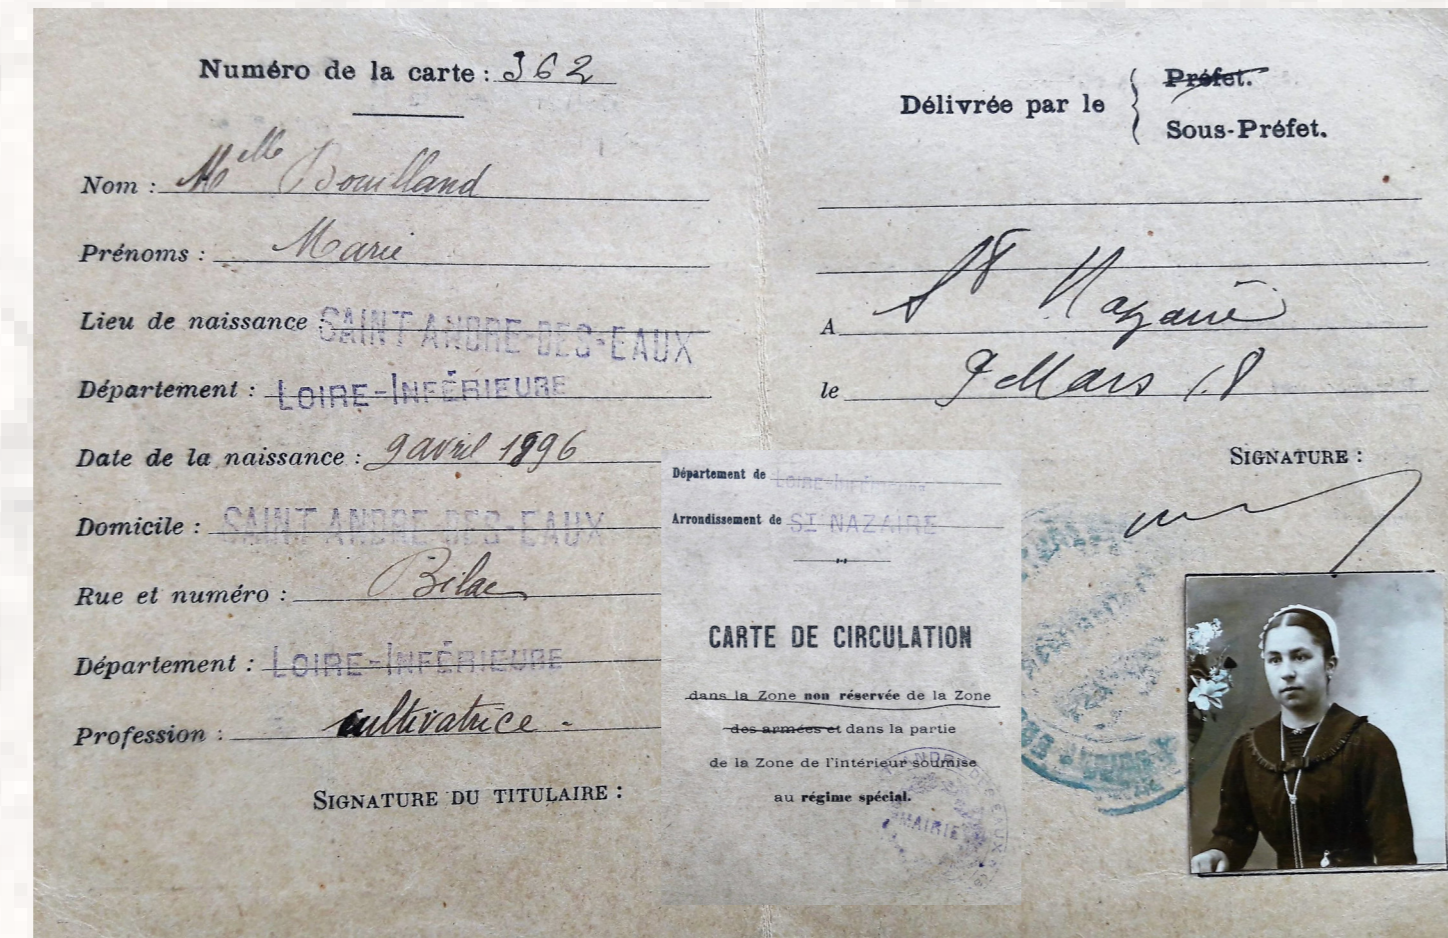 Numéro de la carte : 362
Nom : Melle Bouilland
Prénoms : Marie
Lieu de naissance : SAINT ANDRE-DES-EAUX
Département : LOIRE-INFÉRIEURE
Date de la naissance : 9 avril 1896
Domicile : SAINT ANDRE-DES-EAUX
Rue et numéro : Bilac
Département : LOIRE-INFÉRIEURE
Profession : cultivatrice -
SIGNATURE DU TITULAIRE :
Délivrée par le { Préfet.
Sous-Préfet.
A St Nazaire
le 9 Mars 18
SIGNATURE :
Département de LOIRE-INFÉRIEURE
Arrondissement de ST NAZAIRE
CARTE DE CIRCULATION
dans la Zone non réservée de la Zone
des armées et dans la partie
de la Zone de l'intérieur soumise
au régime spécial.
MAIRIE